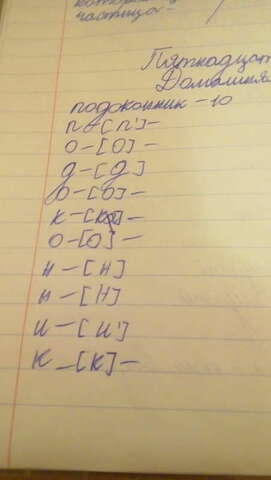 частица-
Пятнадцат
Домашня
подоконник - 10
п - [п'] -
о - [о] -
д - [д]
о - [о] -
к - [к] -
о - [о] -
н - [н]
н - [н]
и - [и']
к - [к] -